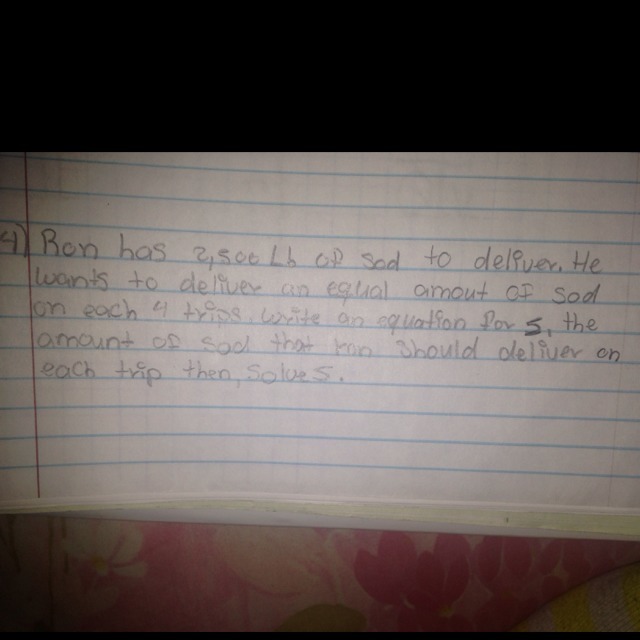 4) Ron has 2,500 Lb of Sod to deliver. He
wants to deliver an equal amout of sod
on each 4 trips. write an equation for s, the
amount of sod that ron should deliver on
each trip then, solve s.